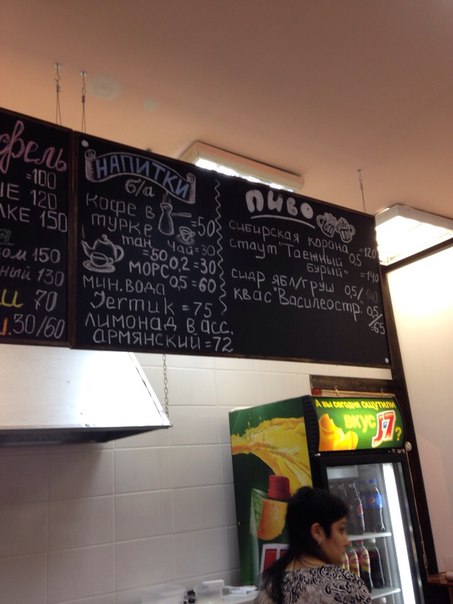 =100
120
ЛКЕ 150
150
130
70
30/60
НАПИТКИ
б/а
КОФЕ В
ТУРКЕ =50
ТАН ЧАЙ=30
=50
МОРС 0,2=30
МИН.ВОДА 0,5=60
Jermuk =75
ЛИМОНАД В АСС.
АРМЯНСКИЙ=72
ПИВО
СИБИРСКАЯ КОРОНА
СТАУТ "ТАЕЖНЫЙ 0,5 =120
БУРЫЙ" =140
СИДР ЯБЛ/ГРУШ 0,5/140
КВАС "ВАСИЛЕОСТР. 0,5/
165
А вы сегодня ощутили
вкус J7?